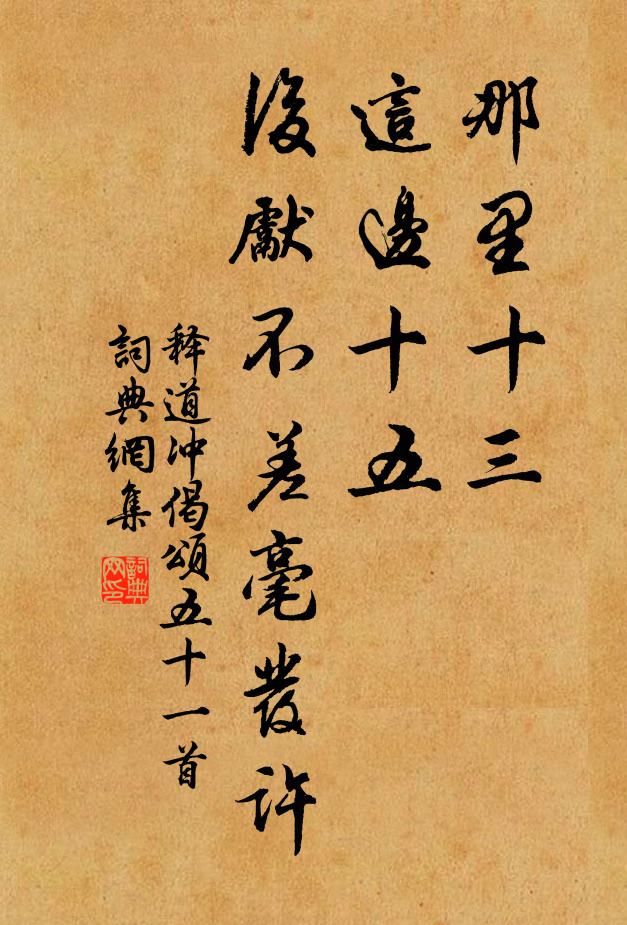 那里十三
這邊十五
後獻不差毫發許
释道冲偈頌五十一首
詞典網集
詞典网印